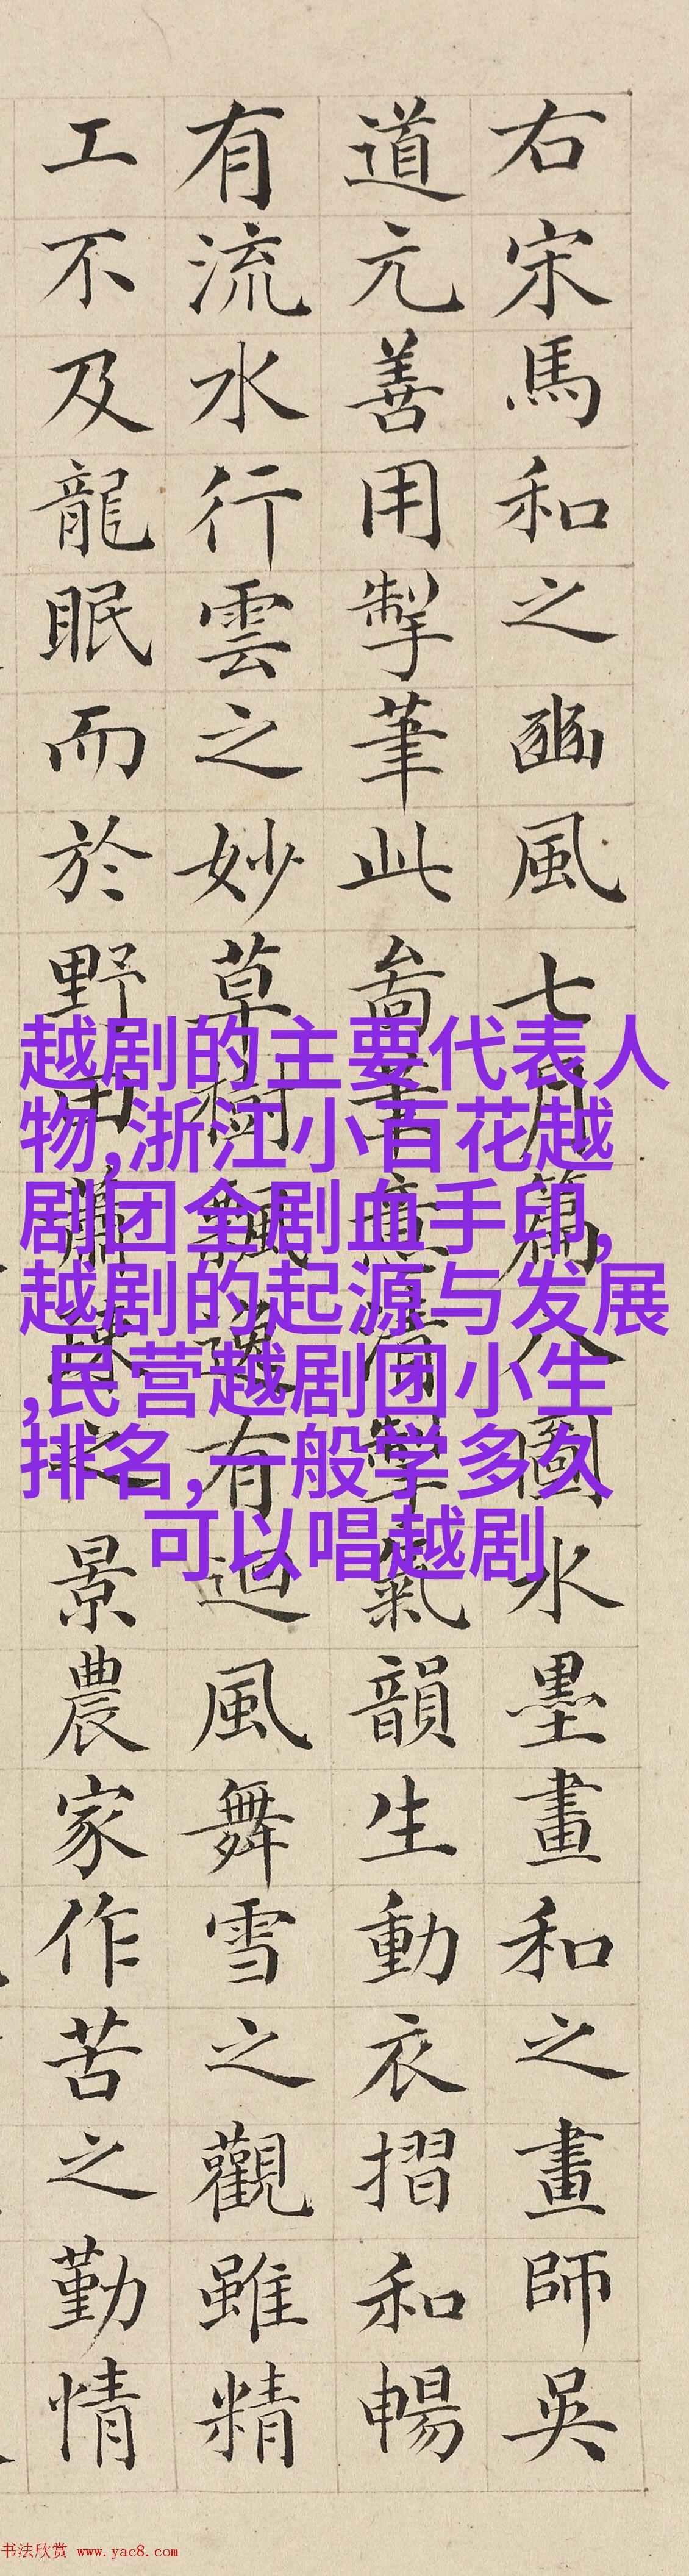 右宋馬和之豳風七月篇八圖水墨畫和之畫師吳
道元善用掣筆此啚筆意清氣韻生動衣摺和暢
有流水行雲之妙草樹飄有迴風舞雪之觀雖精
工不及龍眠而於野田蕭疎之景農家作苦之勤情
越剧的主要代表人
物,浙江小百花越
剧团全剧血手印,
越剧的起源与发展
,民营越剧团小生
排名,一般学多久
可以唱越剧
书法欣赏 www.yac8.com